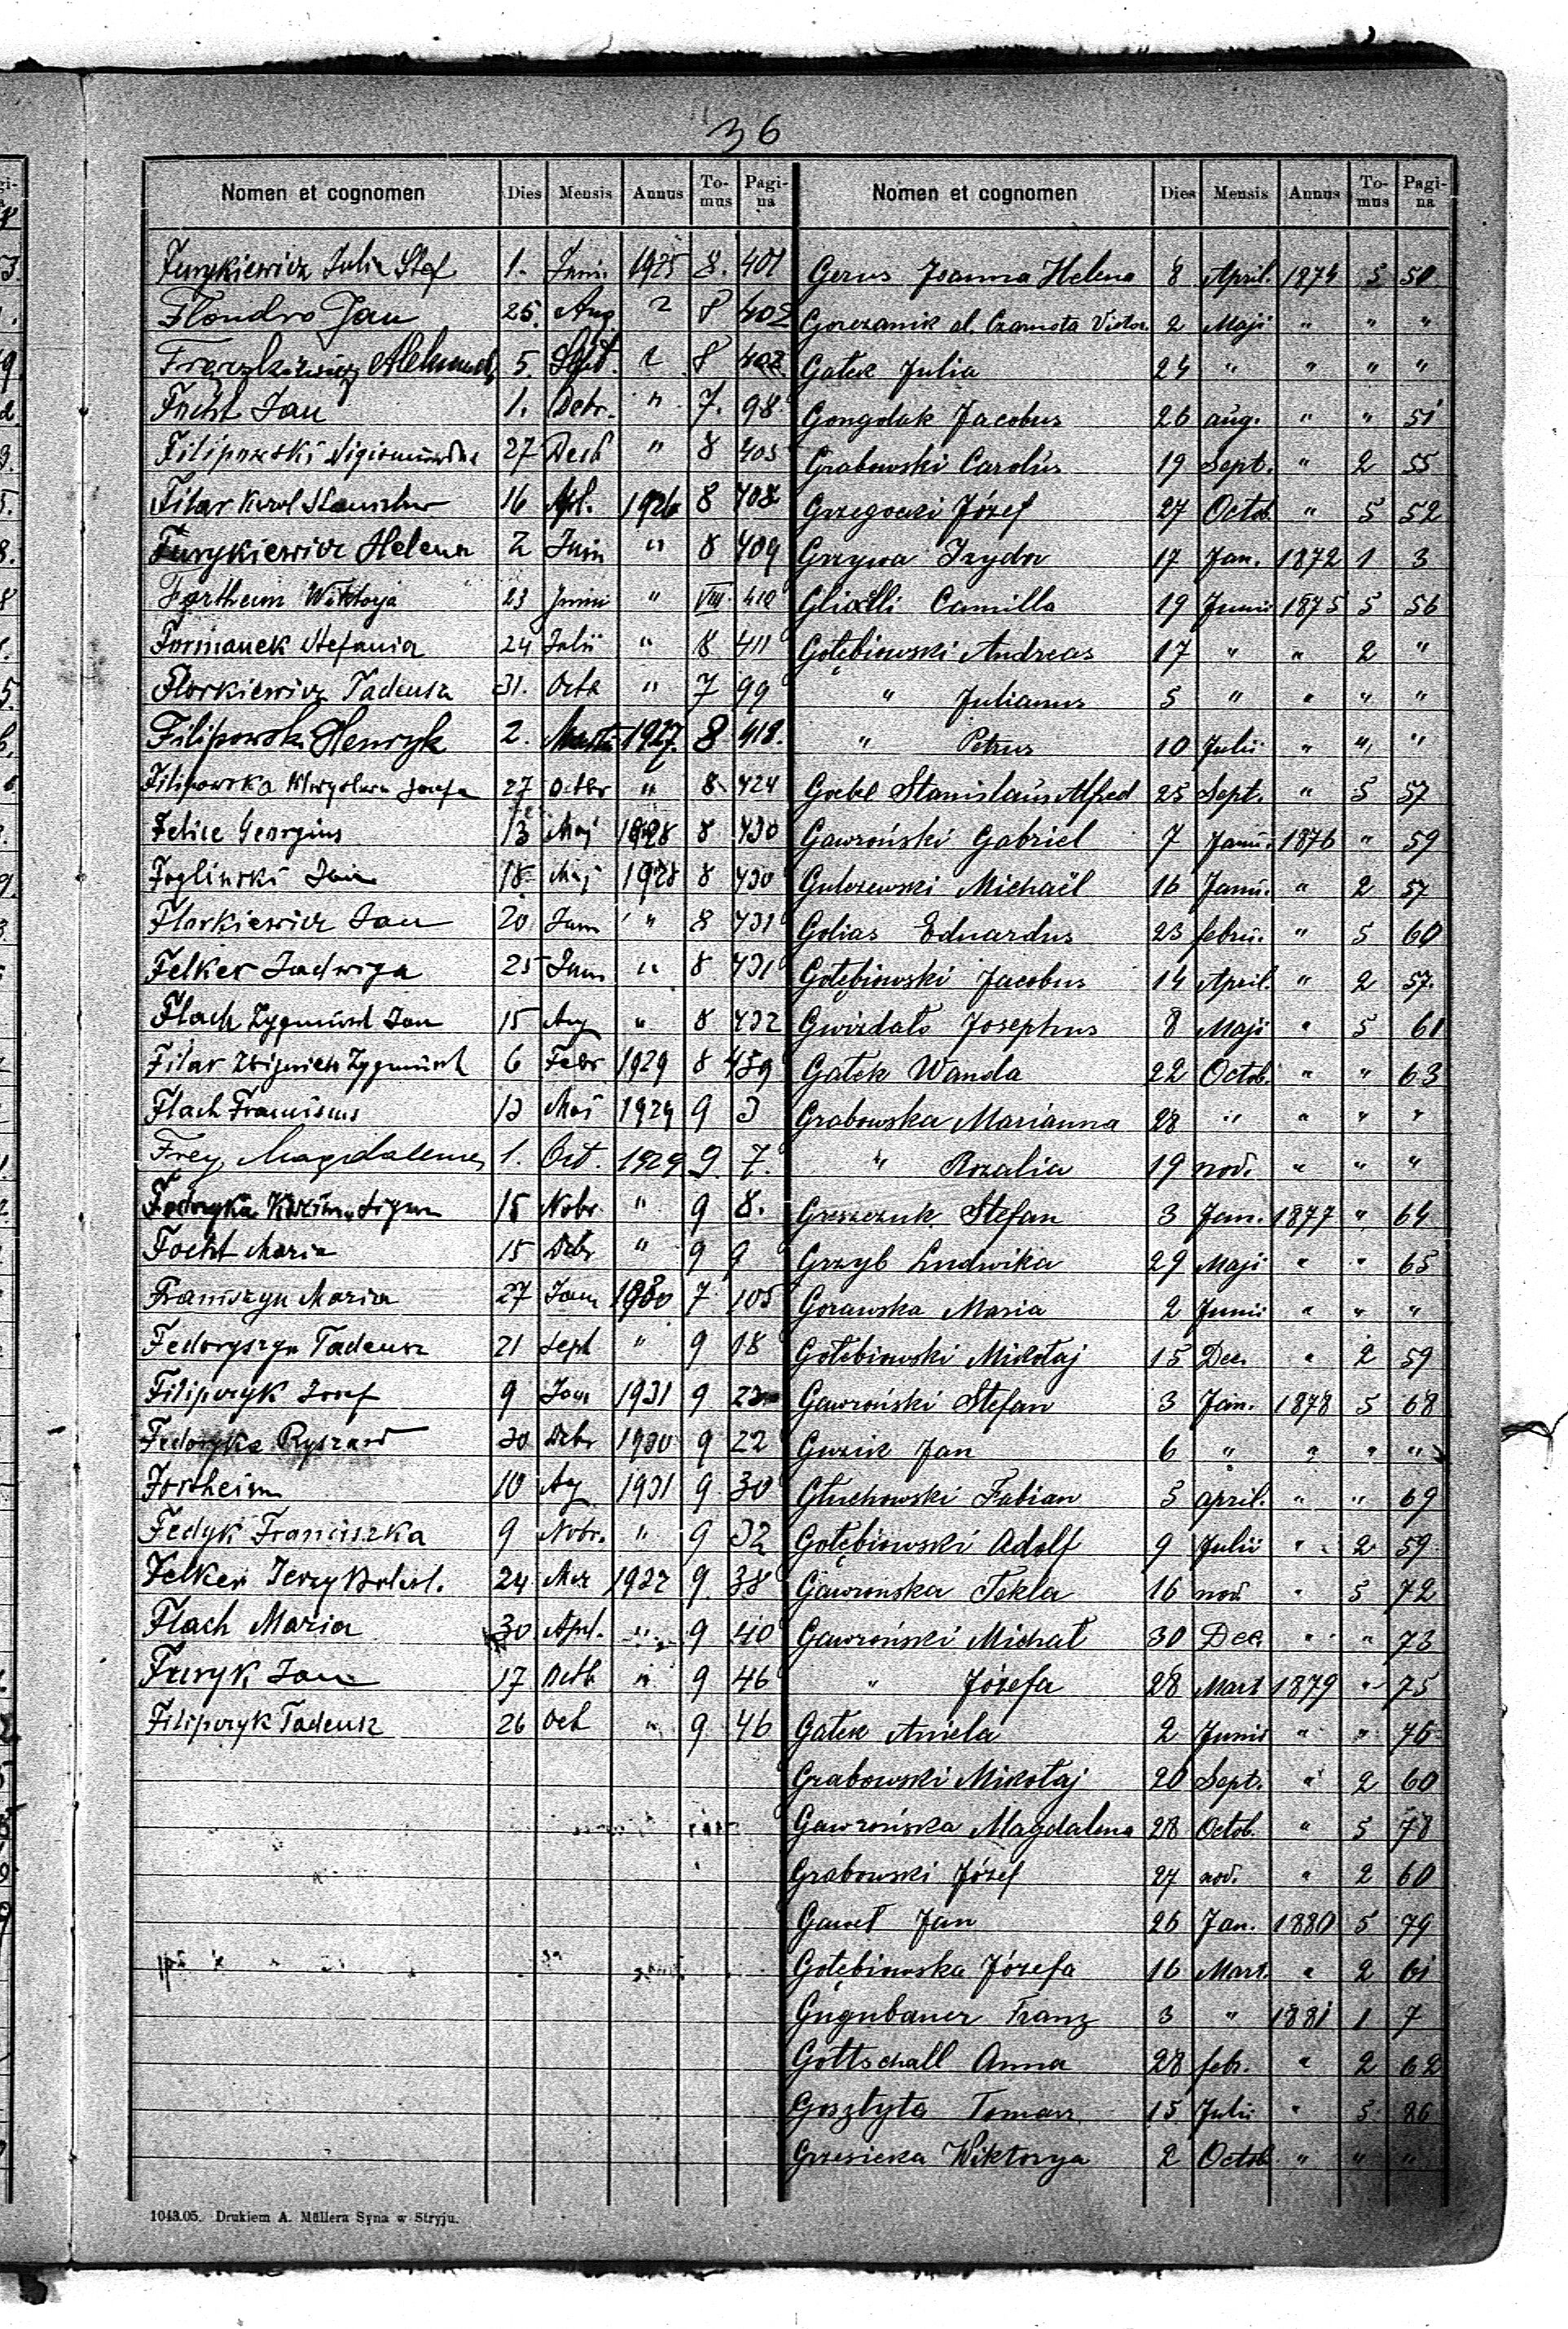 36
Nomen et cognomen Dies Mensis Annus To-mus Pagi-na
Furykiewicz Julia Stef 1. Juni. 1925 8. 401
Flondro Jan 25. Aug. 8 402
5. Sept. 8 402
Focht Jan 1. Debr. " 7. 98
Filipowski 27 Decb " 8 405
Filar Karol Stanisław 16 Apl. 1926 8 408
Furykiewicz Helena 2 Juni " 8 409
Fortheim Wiktorja 23 Junii " VIII. 410
Formanek Stefania 24 Julii " 8 411
Florkiewicz Tadeusz 31. Octb " 7 99
Filipowski Henryk 2. Martii 1927. 8 418.
Filipowska Józefa 27 Octbr " 8 424
Felice Georgius 13 Maj 1928 8 430
Foglinski Jan 18 Maj 1928 8 430
Florkiewicz Jan 20 Juni " 8 431
Felker Jadwiga 25 Juni " 8 431
Flach Zygmunt Jan 15 Aug " 8 432
Filar Zbigniew Zygmunt 6 Febr 1929 8 459
Flach Franciscus 13 Mai 1929 9 3
Frey Magdalena 1. Oct. 1929 9. 7.
Fedoryka 15 Nobr. " 9 8.
Focht Maria 15 Dcbr " 9 9
Franiszyn Maria 27 Jan 1930 7 105
Fedoryszyn Tadeusz 21 Sept " 9 18
Filipczyk Josef 9 Jan 1931 9
Fedoryka Ryszard 30 Dcbr 1930 9 22
Fortheim 10 Aug 1931 9 30
Fedyk Franciszka 9 Nobr. " 9 32
Felker Jerzy Bolesł. 24 Mar 1932 9. 38
Flach Maria 30 Apl. " 9 40
Furyk Jan 17 Octb " 9 46
Filipczyk Tadeusz 26 Oct " 9 46
Nomen et cognomen Dies Mensis Annus To-mus Pagi-na
Gerus Joanna Helena 8 April. 1874 5 50
Gorczanik al. Czarnota Victor. 2 Maji " " "
Gałek Julia 24 " " " "
Gongolak Jacobus 26 aug. " " 51
Grabowski Carolus 19 Sept. " 2 55
Grzegocki Józef 27 Octob. " 5 52
Grzywa Izydor 17 Jan. 1872 1 3
Camilla 19 Junii 1875 5 56
Gołębiowski Andreas 17 " " 2 "
" Julianus 5 " " " "
" Petrus 10 Julii " " "
Goebl Stanislaus Alfred 25 Sept. " 5 57
Gawroński Gabriel 7 Janu. 1876 " 59
Gulczewski Michaël 16 Janu. " 2 57
Golias Eduardus 23 febru. " 5 60
Gołębiowski Jacobus 14 April. " 2 57.
Gwizdało Josephus 8 Maji " 5 61
Gałek Wanda 22 Octob. " " 63
Grabowska Marianna 28 " " " "
" Rozalia 19 nov. " " "
Greszczuk Stefan 3 Jan. 1877 " 64
Grzyb Ludwika 29 Maji " " 65
Gorawska Maria 2 Junii " " "
Gołębiowski Mikołaj 15 Dec. " 2 59
Gawroński Stefan 3 Jan. 1878 5 68
Guzik Jan 6 " " " "
Głuchowski Fabian 5 april. " " 69
Gołębiowski Adolf 9 Julii " 2 59
Gawronska Tekla 16 nov. " 5 72
Gawroński Michał 30 Dec. " " 73
" Józefa 28 Mart 1879 " 75
Gałek Aniela 2 Junii " " 76
Grabowski Mikołaj 20 Sept. " 2 60
Gawrońska Magdalena 28 Octob. " 5 78
Grabowski Józef 27 nov. " 2 60
Gaweł Jan 26 Jan. 1880 5 79
Gołębiowska Józefa 16 Mart. " 2 61
Gugubauer Franz 3 " 1881 1 7
Gottschall Anna 28 febr. " 2 62
Gosztyła Tomasz 15 Julii " 5 86
Grzesicka Wiktorya 2 Octob. " " "
1043.05. Drukiem A. Müllera Syna w Stryju.